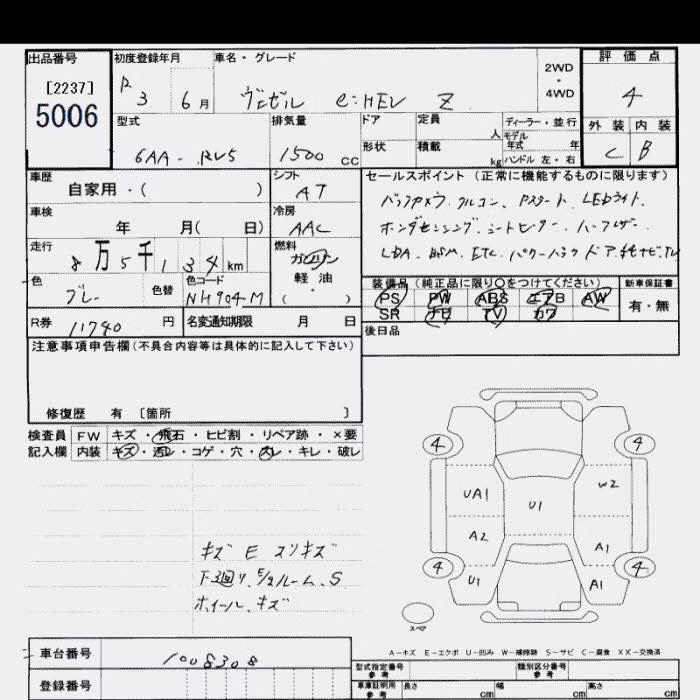 出品番号
[2237]
5006
初度登録年月
R 3 6月
車名・グレード
ヴェゼル e:HEV Z
2WD
・
4WD
評価点
4
外装 内装
C B
型式
6AA-RV5
排気量
1500 cc
ドア
形状
定員 人
積載 kg
ディーラー・並行
モデル年式 年
ハンドル 左・右
車歴
自家用・( )
シフト
AT
車検
年 月( 日)
冷房
AAC
走行
8万5千134km
燃料
ガソリン
軽・油
( ・ )
色
グレー
色替
色コード
NH904-M
R券
11740 円
名変通知期限 月 日
セールスポイント(正常に機能するものに限ります)
バックカメラ.クルコン.Pスタート.LEDライト.
ホンダセンシング.シートヒーター.ハーフレザー.
LDA.BSM.ETC.パワーバックドア.純ナビTV
装備品(純正品に限り○をつけてください)
PS PW ABS エアB AW
SR TV カワ
新車保証書
有・無
後日品
注意事項申告欄(不具合内容等は具体的に記入して下さい)
修復歴 有 〔箇所 〕
検査員 FW キズ・飛石・ヒビ割・リペア跡・×要
記入欄 内装 キズ・汚レ・コゲ・穴・スレ・キレ・破レ
キズ E スリキズ
下廻り、E/ルーム、S
ホイール、キズ
4 4
UA1 U1 W2
A2 A1
4 4
U1 A1
スペア
A-キズ E-エクボ U-凹み W-補修跡 S-サビ C-腐食 XX-交換済
車台番号
1008308
登録番号
型式指定番号
参考
類別区分番号
参考
車庫証明用
参考
長さ cm
幅 cm
高さ cm